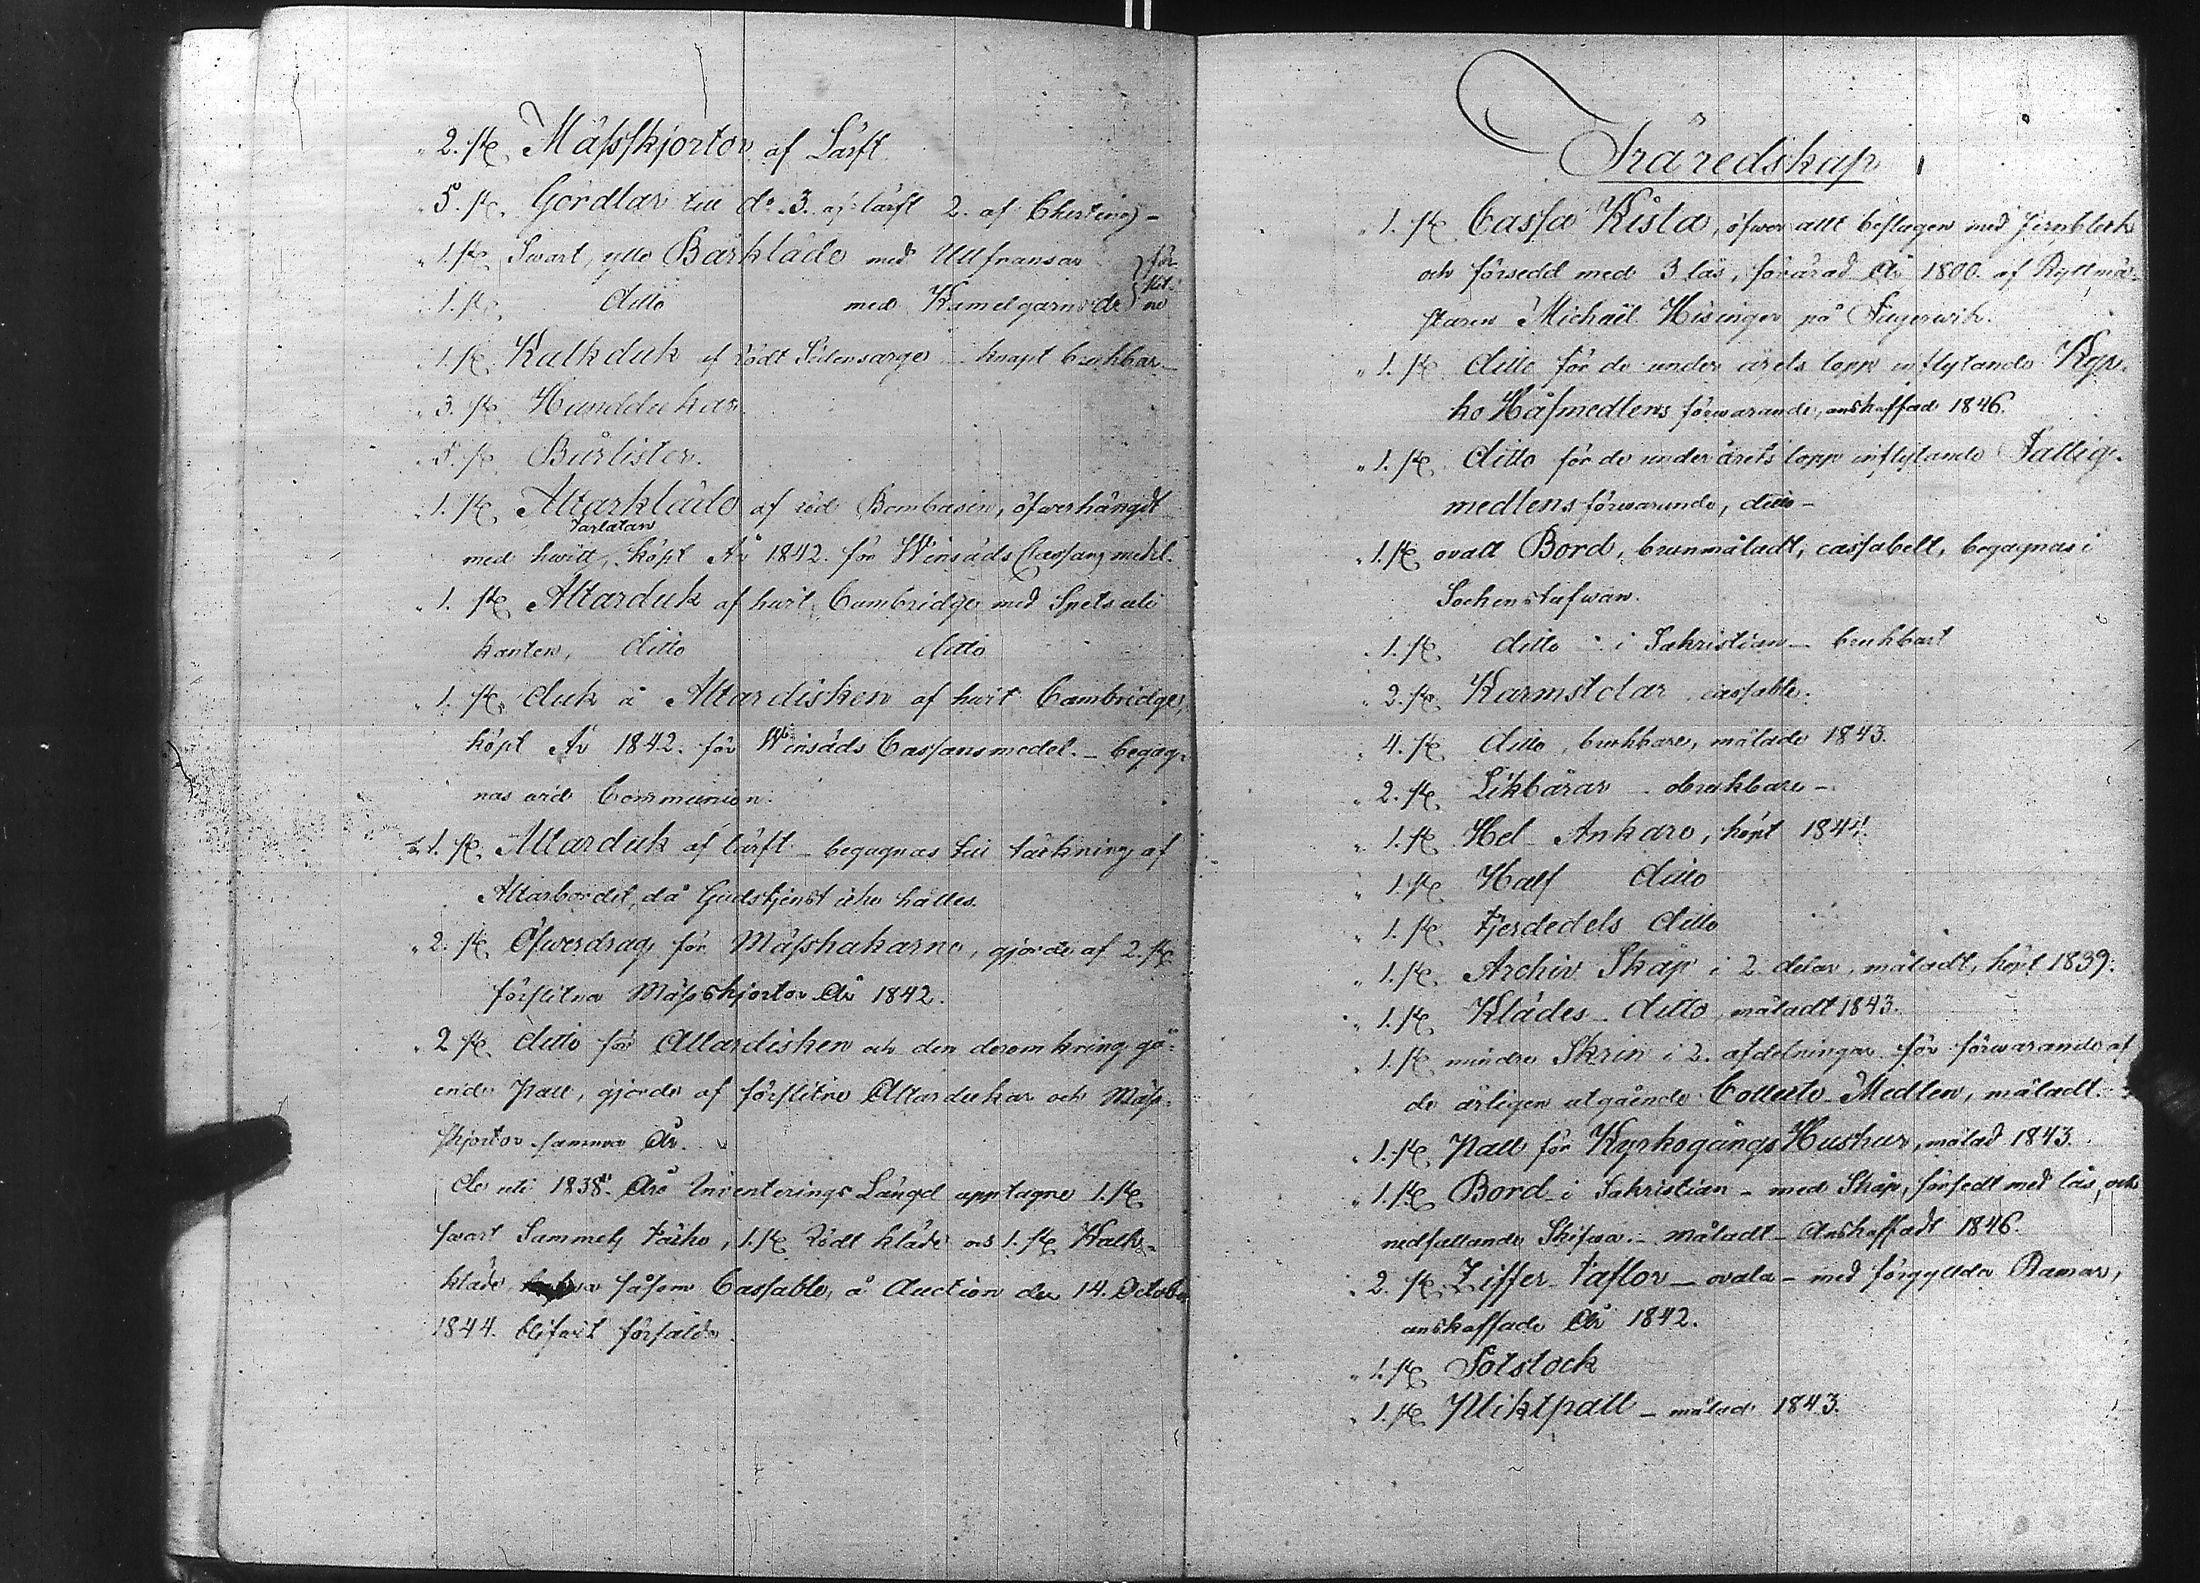 " 2. st. Mässkjortor af Lärft
" 5. st. Gördlar till d:o 3. af lärft 2. af Cherting -
" 1. st. Swart, ylle Bårkläde med Ullfransar } för
" 1. st. ditto med Kamelgarns d:o } slit- ne
" 1. st. Kalkduk af rödt Sidensarge - knapt brukbar -
" 3. st. Handdukar.
" 5. st. Bårlister.
" 1. st. Altarkläde af röd Bombasin, öfwerhängdt
Tarlatan
med hwitt, köpt År 1842. för Winsäds Cassans medel.
" 1. st. Altarduk af hwit Cambridge med Spets uti
kanten, ditto ditto
" 1. st. duk å Altardisken af hwit Cambridge,
köpt År 1842. för Winsäds Cassans medel. - begag-
nas wid Communion.
" 1. st. Altarduk af lärft - begagnas till täckning af
Altarbordet, då Gudstjenst icke hålles.
" 2. st. Öfwerdrag för Mässhakarne, gjorde af 2. st.
förslitna Mässkjortor År 1842.
" 2 st. ditto för Altardisken och den deromkring gå-
ende pall, gjorde af förslitne Altardukar och Mäss-
skjortor samma År.
De uti 1838. Års Inventerings Längd upptagne 1. st.
swart Sammets täcke, 1. st. Rödt kläde och 1. st. Kalk-
kläde, såsom Cassable, å Auction den 14. October
1844. blifwit försålde.
Träredskap
" 1. st. Cassa Kista, öfwer allt beslagen med jernbleck
och försedd med 3 lås, förärad År 1800. af Ryttmä-
staren Michaël Hisinger på Fagerwik.
" 1. st. ditto för de under årets lopp inflytande Kyr-
ko Håfmedlens förwarande, anskaffad 1846.
" 1. st. ditto för de under årets lopp inflytande Fattig-
medlens förwarande, ditto -
" 1. st. ovalt Bord, brunmåladt, cassabelt, begagnas i
Sockenstufwan.
" 1. st. ditto - i Sakristian - brukbart
" 2. st. Karmstolar cassable.
" 4. st. ditto, brukbare, målade 1843.
" 2. st. Likbårar - obrukbare -
" 1. st. Hel - Ankare, köpt 1844.
" 1. st. Half ditto
" 1. st. Fjerdedels ditto
" 1. st. Archiv Skåp i 2 delar, måladt, köpt 1839.
" 1. st. Klädes - ditto, måladt 1843.
" 1. st. mindre Skrin i 2. afdelningar för förwarande af
de årligen utgående Collecte Medlen, måladt.
" 1. st. Pall för Kyrkogångs Hustrur, målad 1843.
" 1. st. Bord i Sakristian - med Skåp, försedt med lås, och
nedfallande Skifwa - måladt - Anskaffadt 1846.
" 2. st. Ziffer-Taflor - ovala - med förgyllda Ramar,
anskaffade År 1842.
" 1. st. Sotstock
" 1. st. Pliktpall - målad 1843.